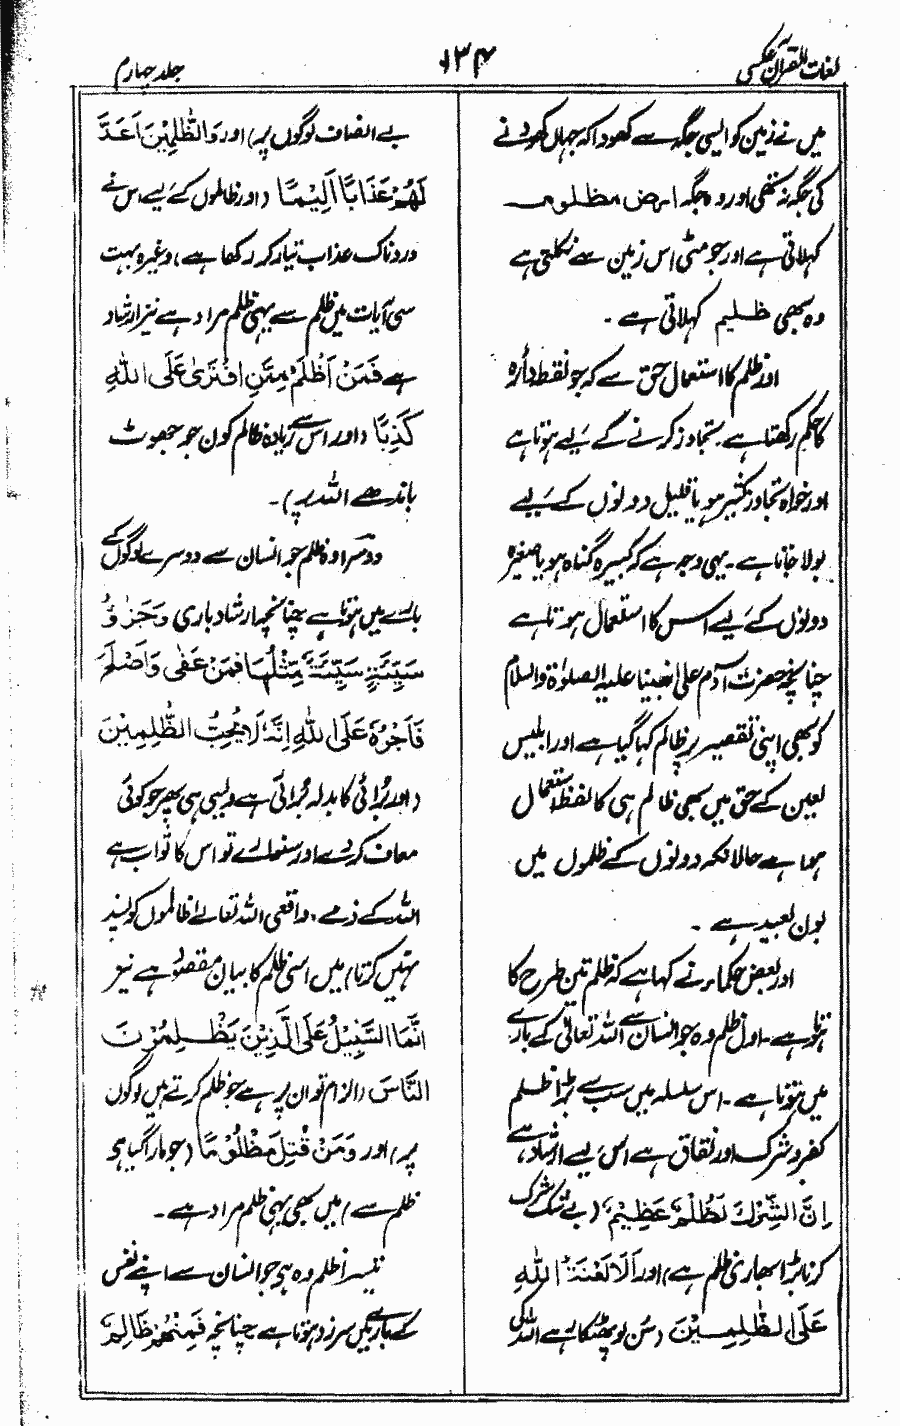 لغات القرآن عکسی
۱۳۴
جلد چہارم
میں نے زمین کو ایسی جگہ سے کھودا کہ جہاں کھودنے
کی جگہ نہ تھی اور وہ جگہ ارض مظلومہ
کہلاتی ہے اور جو مٹی اس زمین سے نکلتی ہے
وہ بھی ظلیم کہلاتی ہے۔
اور ظلم کا استعمال حق سے کہ جو نقطہ دائرہ
کا حکم رکھتا ہے تجاوز کرنے کے لیے ہوتا ہے
اور خواہ تجاوز کثیر ہو یا قلیل دونوں کے لیے
بولا جاتا ہے۔ یہی وجہ ہے کہ کبیرہ گناہ ہو یا صغیرہ
دونوں کے لیے اس کا استعمال ہوتا ہے
چنانچہ حضرت آدم علی نبینا علیہ الصلوٰۃ والسلام
کو بھی اپنی تقصیر پر ظالم کہا گیا ہے اور ابلیس
لعین کے حق میں بھی ظالم ہی کا لفظ استعمال
ہوا ہے حالانکہ دونوں کے ظلموں میں
بون بعید ہے۔
اور بعض حکماء نے کہا ہے کہ ظلم تین طرح کا
ہوتا ہے۔ اول ظلم وہ جو انسان سے اللہ تعالیٰ کے بارے
میں ہوتا ہے۔ اس سلسلہ میں سب سے بڑا ظلم
کفر و شرک اور نفاق ہے اس لیے ارشاد ہے،
اِنَّ الشِّرْكَ لَظُلْمٌ عَظِيْمٌ (بے شک شرک
کرنا بڑا بھاری ظلم ہے) اور اَلَا لَعْنَةُ اللّٰهِ
عَلَى الظّٰلِمِيْنَ (سن لو پھٹکار ہے اللہ کی
بے انصاف لوگوں پر) اور وَالظّٰلِمِيْنَ اَعَدَّ
لَهُمْ عَذَابًا اَلِيْمًا (اور ظالموں کے لیے اس نے
دردناک عذاب تیار کر رکھا ہے) وغیرہ بہت
سی آیات میں ظلم سے یہی ظلم مراد ہے نیز ارشاد
ہے فَمَنْ اَظْلَمُ مِمَّنِ افْتَرٰى عَلَى اللّٰهِ
كَذِبًا (اور اس سے زیادہ ظالم کون جو جھوٹ
باندھے اللہ پر)۔
دوسرا وہ ظلم جو انسان سے دوسرے لوگوں کے
بارے میں ہوتا ہے چنانچہ ارشاد باری وَجَزٰٓؤُ
سَيِّئَةٍ سَيِّئَةٌ مِّثْلُهَا فَمَنْ عَفٰى وَاَصْلَحَ
فَاَجْرُهٗ عَلَى اللّٰهِ اِنَّهٗ لَا يُحِبُّ الظّٰلِمِيْنَ
(اور برائی کا بدلہ برائی ہے ویسی ہی پھر جو کوئی
معاف کردے اور سنوارے تو اس کا ثواب ہے
اللہ کے ذمے، واقعی اللہ تعالیٰ ظالموں کو پسند
نہیں کرتا) میں اسی ظلم کا بیان مقصود ہے نیز
اِنَّمَا السَّبِيْلُ عَلَى الَّذِيْنَ يَظْلِمُوْنَ
النَّاسَ (الزام تو ان پر ہے جو ظلم کرتے ہیں لوگوں
پر) اور وَمَنْ قُتِلَ مَظْلُوْمًا (جو مارا گیا ہو
ظلم سے) میں بھی یہی ظلم مراد ہے۔
تیسرا ظلم وہ ہے جو انسان سے اپنے نفس
کے بارے میں سرزد ہوتا ہے چنانچہ فَمِنْهُمْ ظَالِمٌ